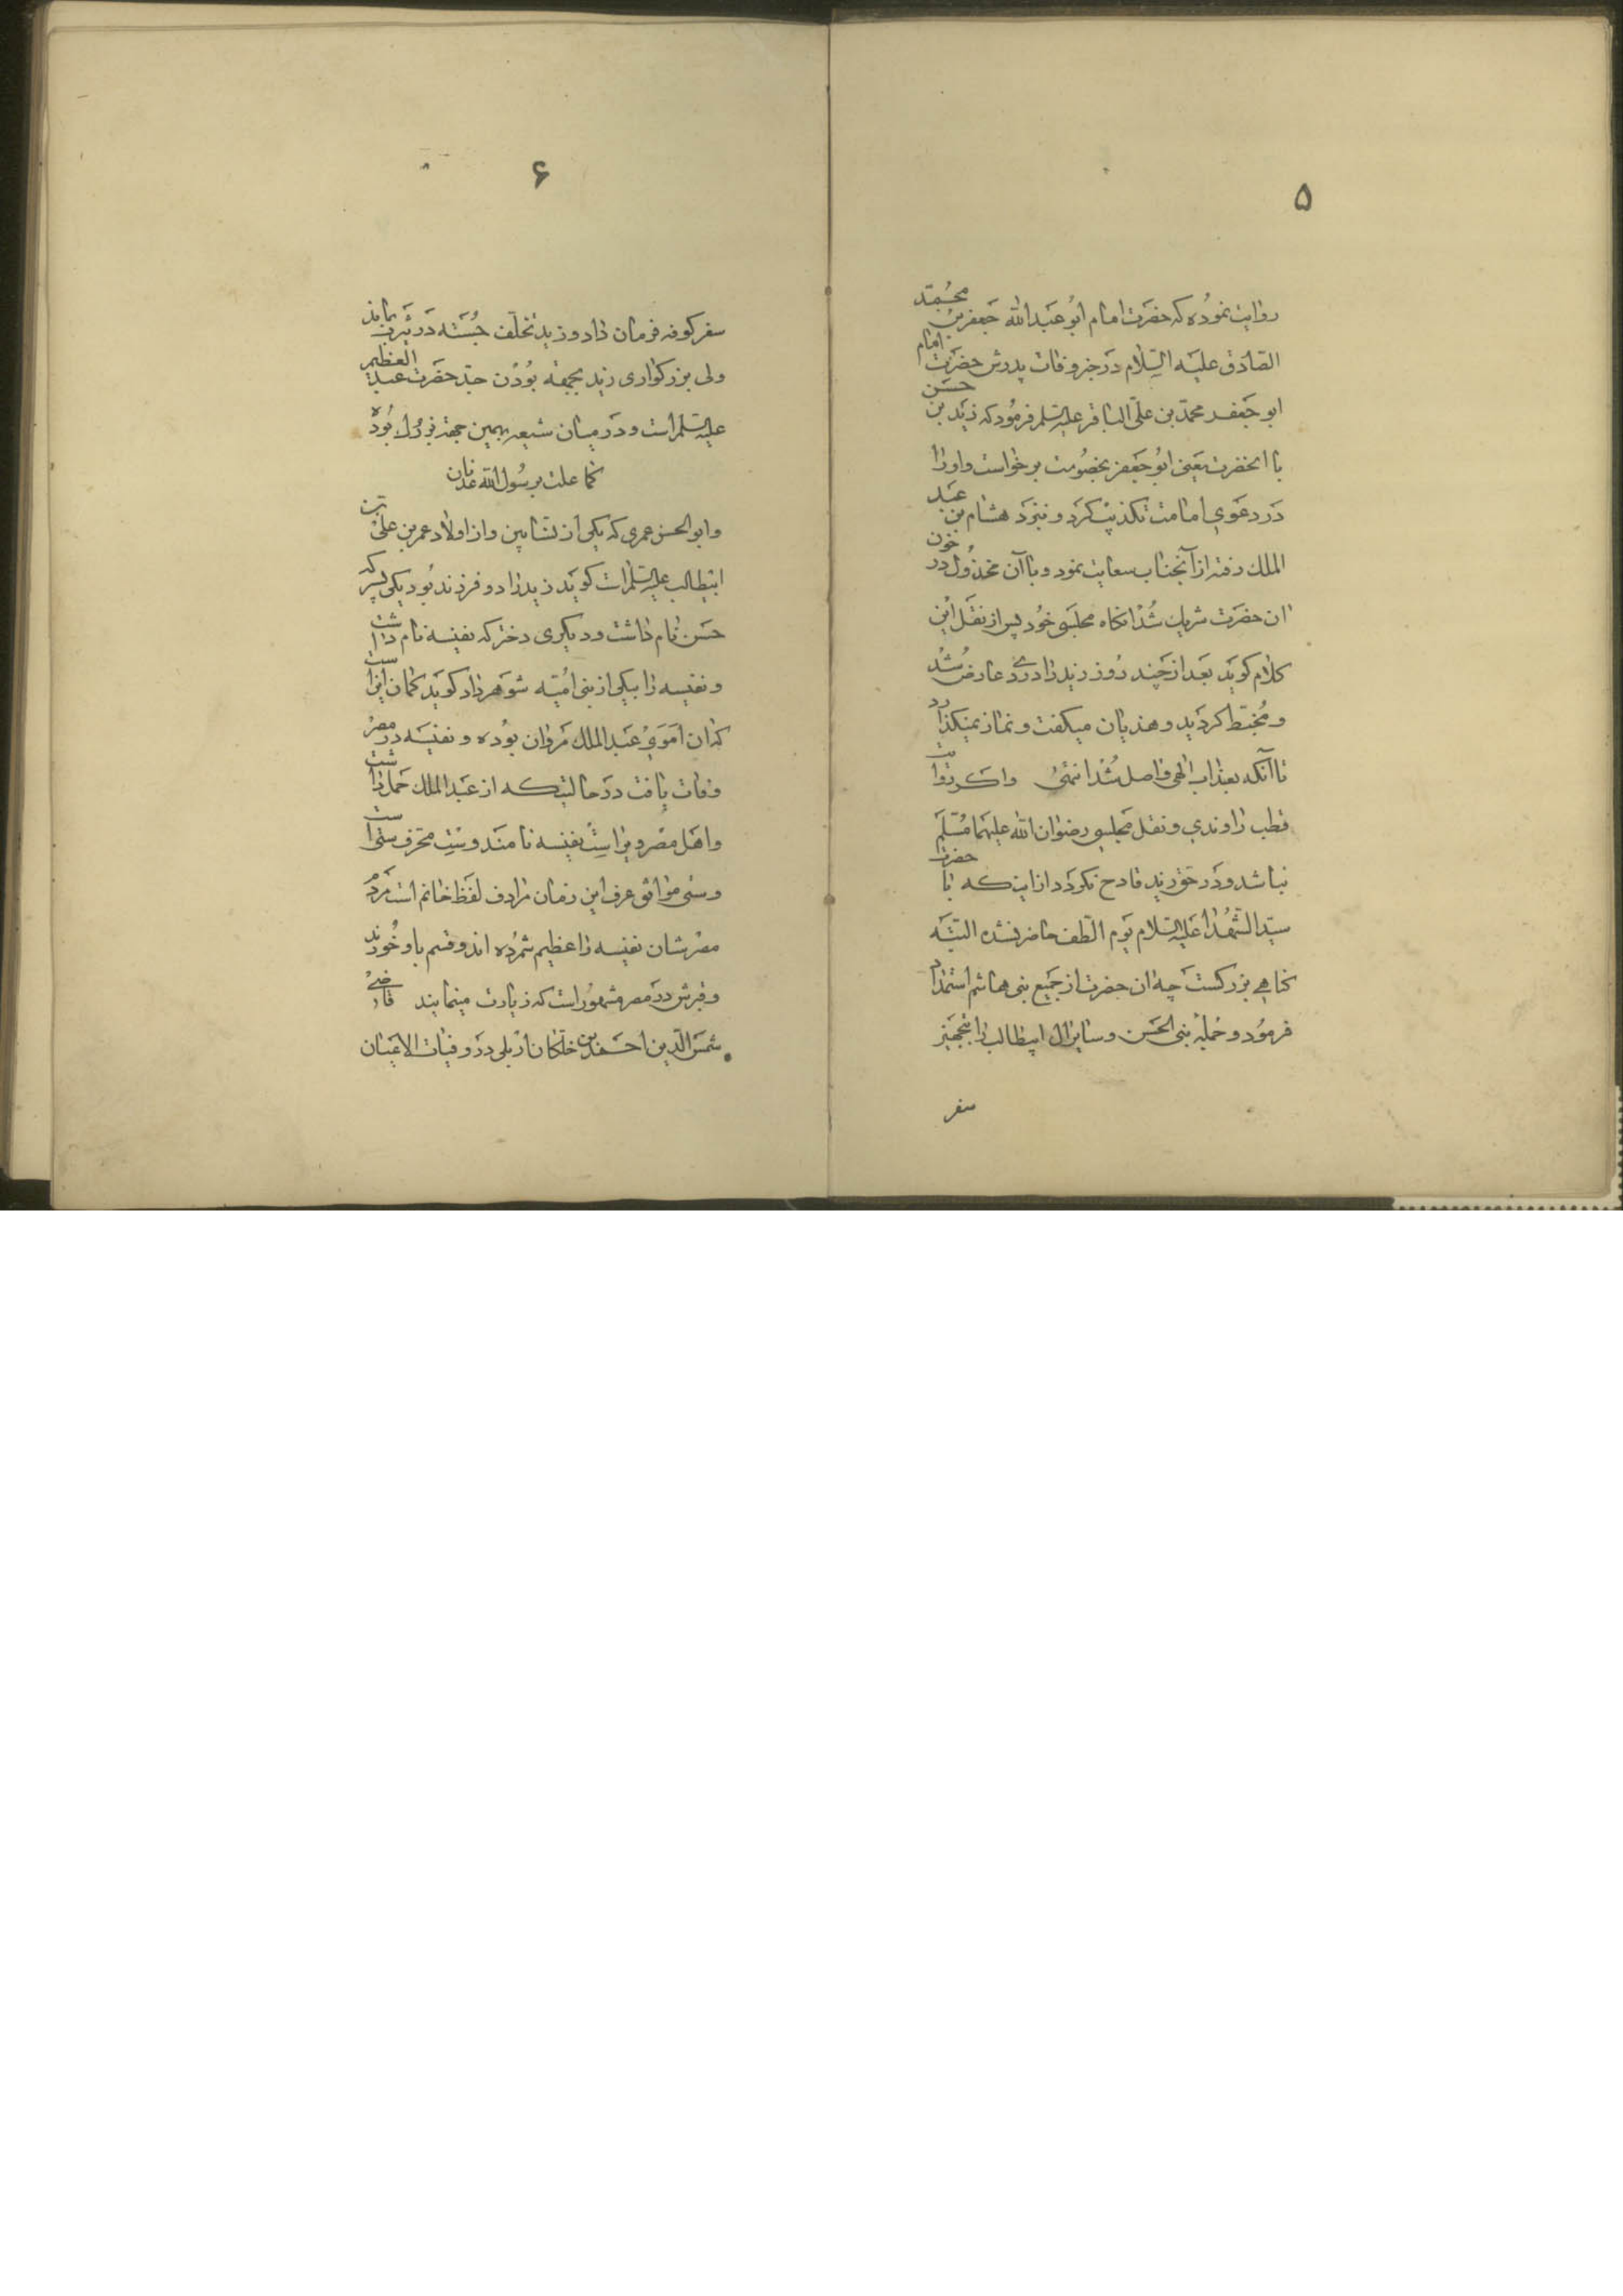 ۵
روایت نموده که حضرت امام ابو عبدالله جعفر بن محمد
الصادق علیه السلام در خبر وفات پدرش حضرت امام
ابو جعفر محمد بن علی الباقر علیه السلم فرمود که زید بن حسن
با آنحضرت یعنی ابو جعفر بخصومت برخواست و اورا
در دعوی امامت تکذیب کرد و نزد هشام بن عبد
الملک رفته از آنجناب سعایت نمود و با آن مخذول در خون
ان حضرت شریک شد انگاه مجلسی خود پس از نقل این
کلام کوید بعد از چند روز زید را دردی عارض شد
و مخبط کردید و هذیان میکفت و نماز نمیکذارد
تا آنکه بعذاب الهی واصل شد انتهی و اکر روایت
قطب راوندی و نقل مجلسی رضوان الله علیهما مسلم
نباشد و در حق زید قادح نکردد از اینکه با حضرت
سید الشهدا علیه السلام یوم الطف حاضر نشده البته
کناهی بزرکست چه ان حضرت از جمیع بنی هاشم استمداد
فرمود و جمله بنی الحسن و سایر ال ابیطالب را بتجهیز
سفر
۶
سفر کوفه فرمان داد و زید تخلف جسته در یثرب بماند
ولی بزرکواری زید بجهة بودن جد حضرت عبد العظیم
علیه السلم است و در میان شیعه بهمین جهة نزدل بوده
کما علت برسول الله عدنان
و ابو الحسن عمری که یکی از نسابین و از اولاد عمر بن علی بن
ابیطالب علیه السلم است کوید زید را دو فرزند بود یکی پسر که
حسن نام داشت و دیکری دختر که نفیسه نام داشت
و نفیسه را بیکی از بنی امیه شوهر داد کوید کمان این است
که ان اموی عبد الملک مروان بوده و نفیسه در مصر
وفات یافت در حالتیکه از عبد الملک حمل داشت
و اهل مصر ویرا ست نفیسه نامند و ست محرف ستی است
و ستی موافق عرف این زمان مرادف لفظ خانم است مردم
مصر شان نفیسه را عظیم شمرده اند و قسم باو خورند
و قبرش در مصر مشهور است که زیارت مینمایند قاضی
شمس الدین احمد بن خلکان اربلی در وفیات الاعیان